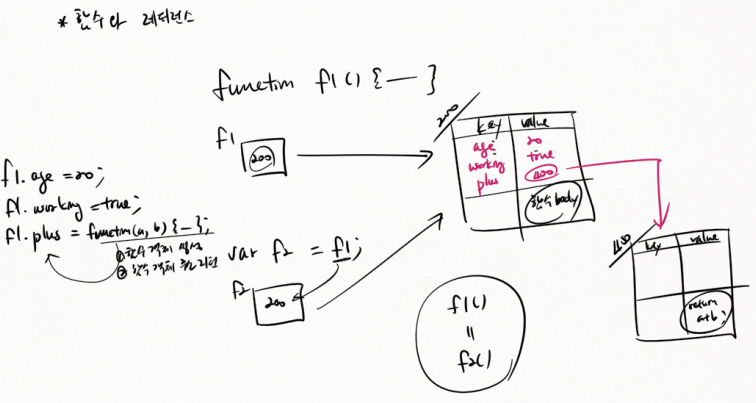 * 함수와 레퍼런스
function f1() { — }
f1
200
200
key value
age 20
working true
plus
함수 body
f1.age = 20;
f1.working = true;
f1.plus = function(a, b) { — };
① 함수 객체 생성
② 함수 객체 주소 리턴
var f2 = f1;
f2
200
f1()
"
f2()
key value
return
a+b;